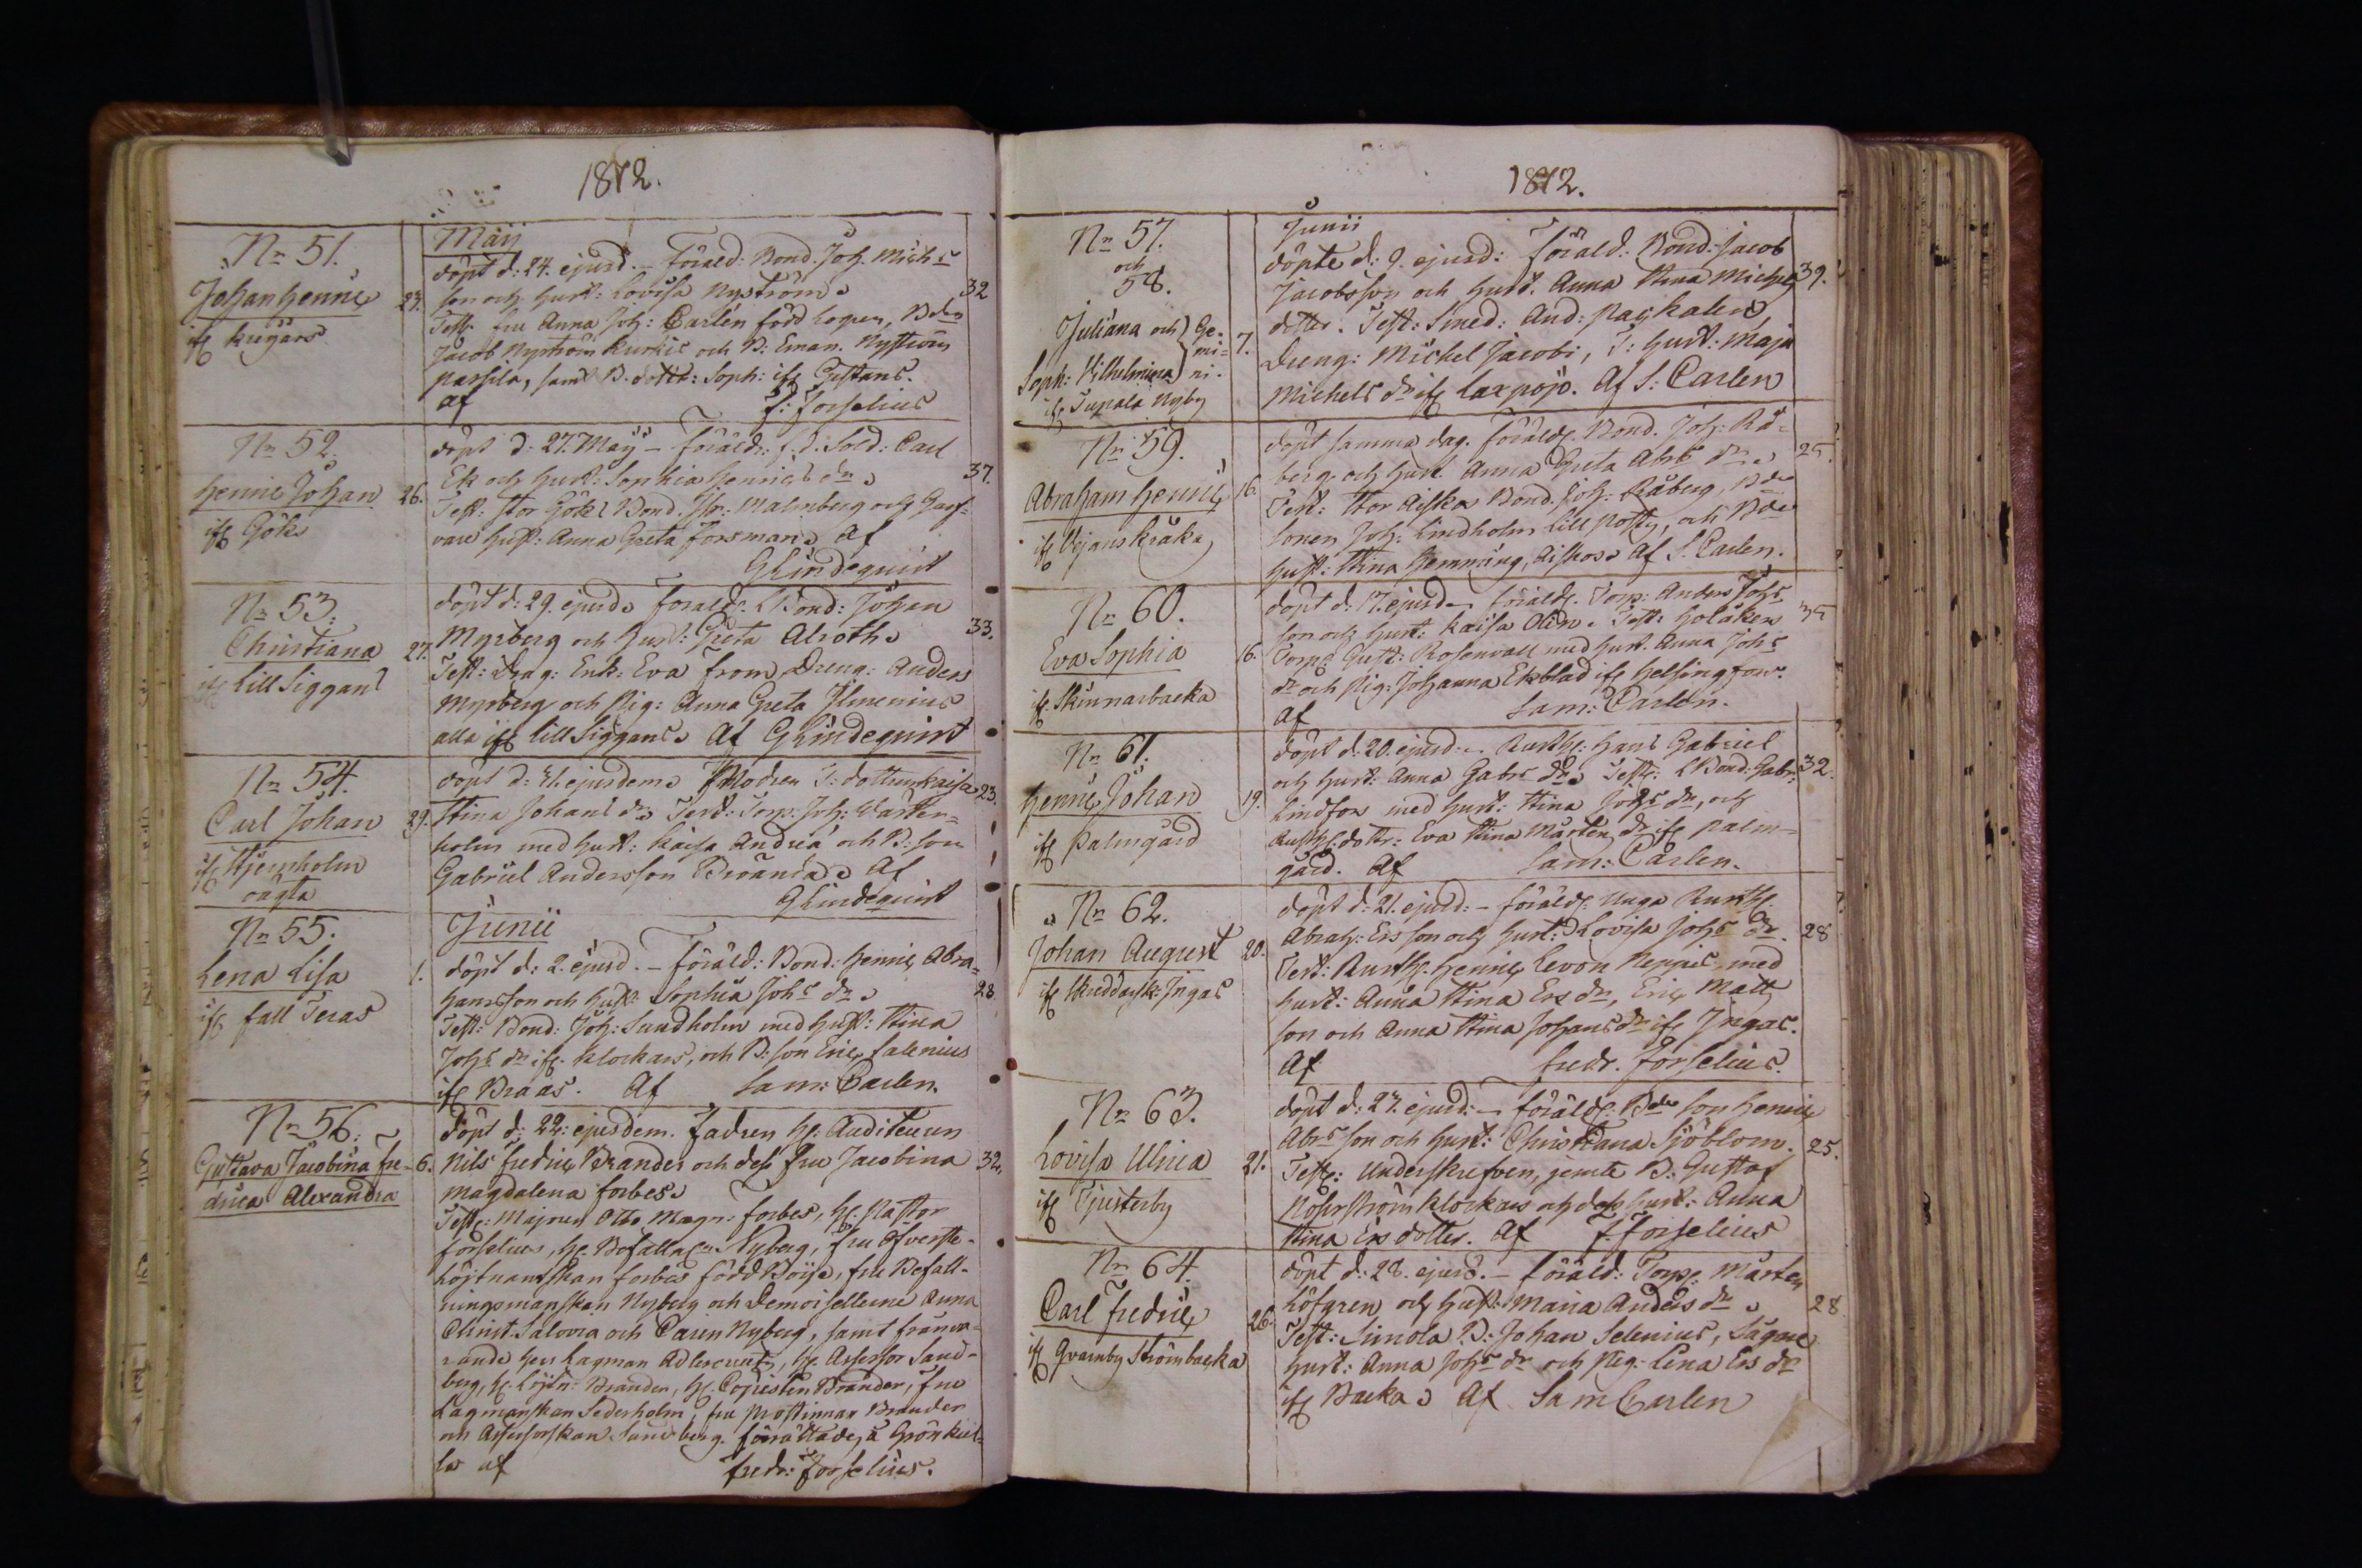 1812.
Nr 51.
Johan Henric
ifr Krogars
23.
Maij
döpt d: 24. ejusd. – Föräld: Bond. Joh. Michs
son och hust: Lovisa Nyström.
32
Test: fru Anna Joh: Carlén född, Bdn
Jacob Nyström Kurkis och B: Eman. Nyström
Passila, samt B. dottr: Soph: ifr Gustans.
af F: Forselius
Nr 52.
Henric Johan
ifr Göks
26.
döpt d: 27. Maij – Föräldr: f.d. Sold: Carl
Ek och hust: Sophia Henrics dr.
37.
Test: Stor Göks Bond. Malmberg och Garf-
vare hust: Anna Greta Forsman. Af
GLindequist
Nr 53.
Christiana
ifr Lill Siggans
27.
döpt d: 29. ejusd. Föräldr: LBond: Johan
Myrberg och hust: Greta Alroth.
33.
Test: Drag: Enk: Eva From, Dreng: Anders
Myrberg och Pig: Anna Greta Ilmenius
alla ifr Lill Siggans. Af GLindequist
Nr 54.
Carl Johan
ifr Stjernholm
oägta
29.
döpt d: 31. ejusdem. Modren T: dottren Kaisa
23.
Stina Johans dr. Test: Torp: Joh: Waster-
holm med hust: Kaisa Andrea och B: son
Gabriel Andersson Broända. Af
GLindequist
Nr 55.
Lena Lisa
ifr Fall Teras
1.
Junii
döpt d: 2. ejusd. – Föräld: Bond: Henric Abra-
hamsson och hust: Sophia Johs dr.
28.
Test: Bond: Joh: Sundholm med hust: Stina
Johs dr ifr Klockars, och B: son Eric Salenius
ifr Braas. Af Sam: Carlen.
Nr 56.
Gustava Jacobina Fre-
drica Alexandra
6.
döpt d: 22: ejusdem. Fadren Hr Auditeuren
Nils Fredric Brander och dess Fru Jacobina
32.
Magdalena Forbes.
Test: Majoren Otto Magn: Forbes, Hr Pastor
Forselius, Hr Befallnm Nyberg, Fru Öfverste-
löjtnantskan Forbes född Boije, fru Befall-
ningsmanskan Nyberg och Demoisellerne Anna
Christ. Salovia och Carin Nyberg, samt frånva-
rande Herr Lagman Adlercreutz, Hr Assessor Sand-
berg, Hr Löjtn: Brander, Hr Copisten Brander, Fru
Lagmanskan Sederholm, fru Prostinnan Brander
och Assessorskan Sandberg. Förrättades å Grönkul-
la af Fredr: Forselius.
1812.
Nr 57.
och
58.
Juliana och
Soph: Vilhelmina
Ge-
mi-
ni.
ifr Tupala Nyby
7.
Junii
döpte d: 9. ejusd: Föräld: Bond: Jacob
Jacobsson och hust. Anna Stina Michels
39.
dotter. Test: Smed: And: Paskalen,
Dreng: Michel Jacobi, T: hust: Maja
Michels dr ifr Laxpojo. Af S: Carlen
Nr 59.
Abraham Henric
ifr Wejans Kråka
16.
döpt samma dag. Föräldr. Bond. Joh: Rå-
berg och hust Anna Greta Abrs dr.
25.
Test: Stor Aiska Bond. Joh. Råberg, Bde
sonen Joh: Lindholm Lill Posty, och Bde
hust: Stina Hemming, Aiskos. Af S. Carlen.
Nr 60.
Eva Sophia
ifr Skinnarbacka
16.
döpt d: 17. ejusd. föräldr. Torp: Anders Johs
son och hust: Kaisa Olin. Test: Holåkers
35
Torpe Gust: Rosenvall med hust. Anna Johs
dr och Pig: Johanna Ekblad ifr Helsingfors.
Af Sam: Carlén.
Nr 61.
Henric Johan
ifr Palmgård
19.
döpt d: 20. ejusd: Rusth: Hans Gabriel
och hust: Anna Gabrs dr. Test: LBond: Gabr:
32.
Lindfors med hust: Stina Johs dr, och
Rusth: dottr: Eva Stina Mårtens dr ifr Palm-
gård. Af Sam: Carlen.
Nr 62.
Johan August
ifr Skuddarsk: Ingas
20.
döpt d: 21. ejusd: – föräldr: Unga Rusth:
Abrah: Ersson och hust: Lovisa Johs dr.
28
Test: Rusth: Henric Levon Reppis, med
hust: Anna Stina Ers dr, Eric Matts
son och Anna Stina Johans dr ifr Ingas.
Af Fredr. Forselius.
Nr 63.
Lovisa Ulrica
ifr Tjusterby
21.
döpt d: 27. ejusd: – föräldr: Bde son Henric
Abrs son och hust: Christiana Sjöblom.
25.
Test: Underskrefven, jemte B: Gustaf
Nohrström Klockars och dess hust: Anna
Stina Ers dotter. Af F. Forselius
Nr 64.
Carl Fredric
ifr Qvarnby Strömbacka
26.
döpt d: 28. ejusd. – föräld: Torp: Mårten
Löfgren och hust: Maria Anders dr.
28
Test: Simola B: Johan Selenius, Sågare
hust: Anna Johs dr och Pig: Lena Ers dr
ifr Backa. Af Sam Carlen